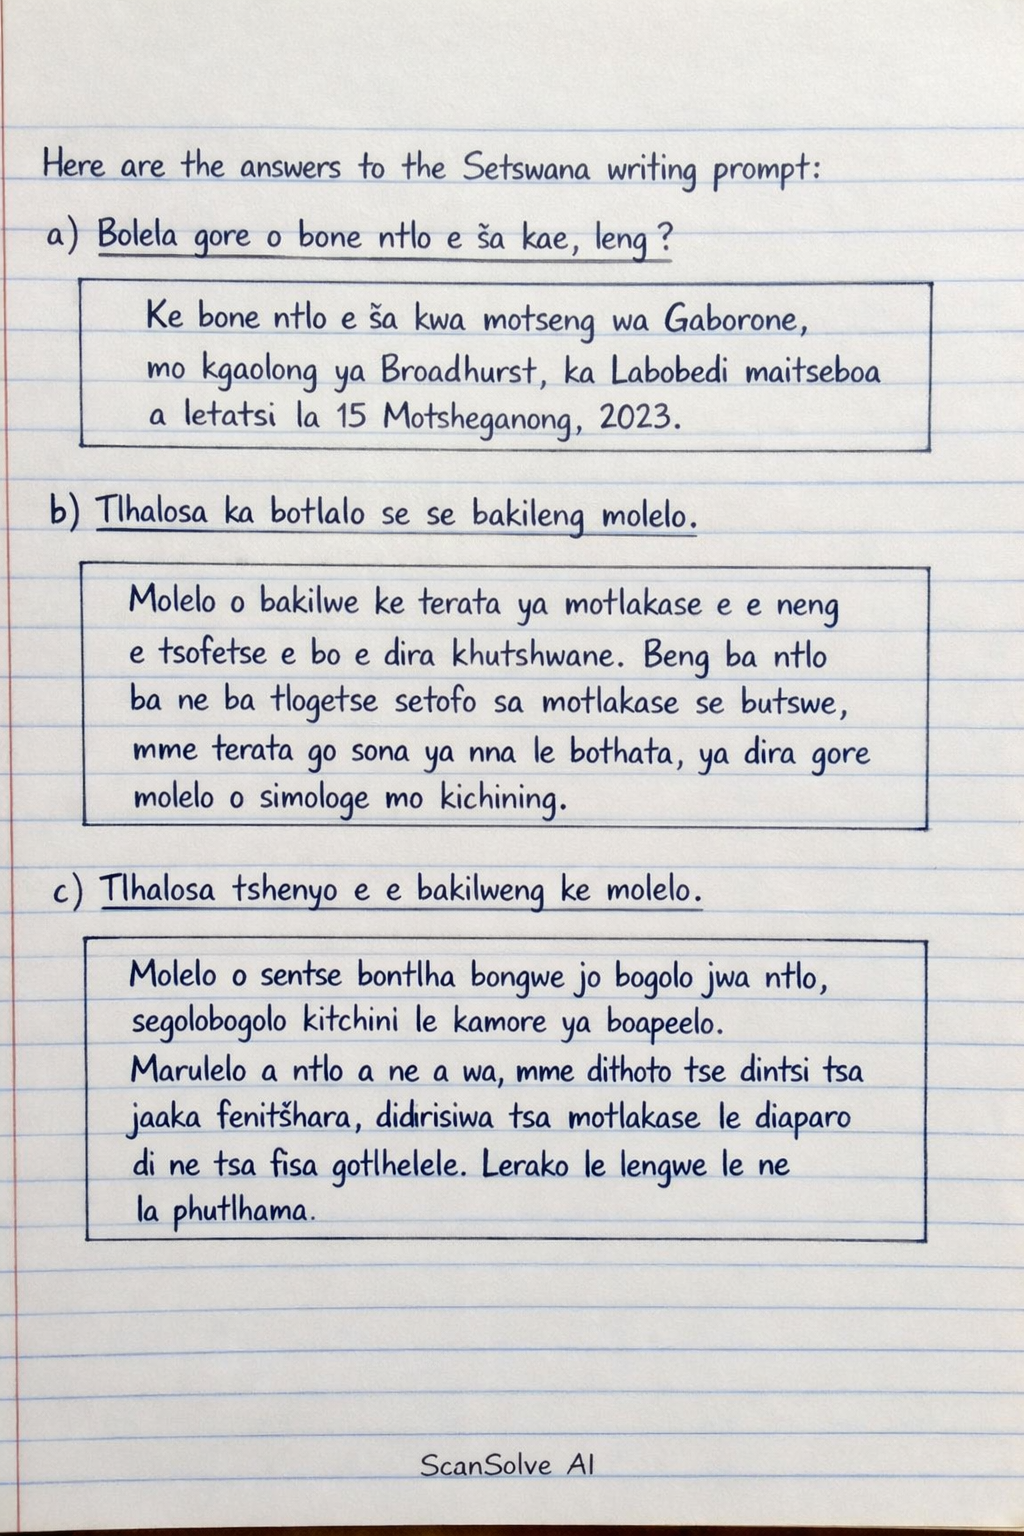 Here are the answers to the Setswana writing prompt:
a) Bolela gore o bone ntlo e ša kae, leng?
Ke bone ntlo e ša kwa motseng wa Gaborone,
mo kgaolong ya Broadhurst, ka Labobedi maitseboa
a letatsi la 15 Motsheganong, 2023.
b) Tlhalosa ka botlalo se se bakileng molelo.
Molelo o bakilwe ke terata ya motlakase e e neng
e tsofetse e bo e dira khutshwane. Beng ba ntlo
ba ne ba tlogetse setofo sa motlakase se butswe,
mme terata go sona ya nna le bothata, ya dira gore
molelo o simologe mo kichining.
c) Tlhalosa tshenyo e e bakilweng ke molelo.
Molelo o sentse bontlha bongwe jo bogolo jwa ntlo,
segolobogolo kitchini le kamore ya boapeelo.
Marulelo a ntlo a ne a wa, mme dithoto tse dintsi tsa
jaaka fenitšhara, didirisiwa tsa motlakase le diaparo
di ne tsa fisa gotlhelele. Lerako le lengwe le ne
la phutlhama.
ScanSolve AI